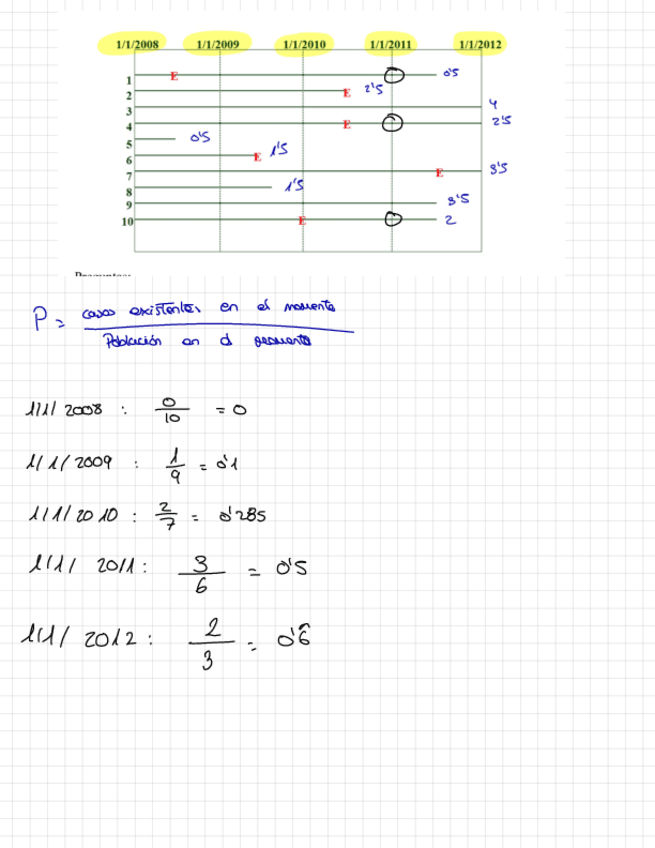 1/1/2008 1/1/2009 1/1/2010 1/1/2011 1/1/2012
1 E 0'5
2 E 2'5
3 4
4 E 2'5
5 0'5
6 E 1'5
7 E 3'5
8 1'5
9 3'5
10 E 2
P = casos existentes en el momento
Población en el momento
1/1/2008 : 0/10 = 0
1/1/2009 : 1/9 = 0'1
1/1/2010 : 2/7 = 0'285
1/1/2011 : 3/6 = 0'5
1/1/2012 : 2/3 = 0'6